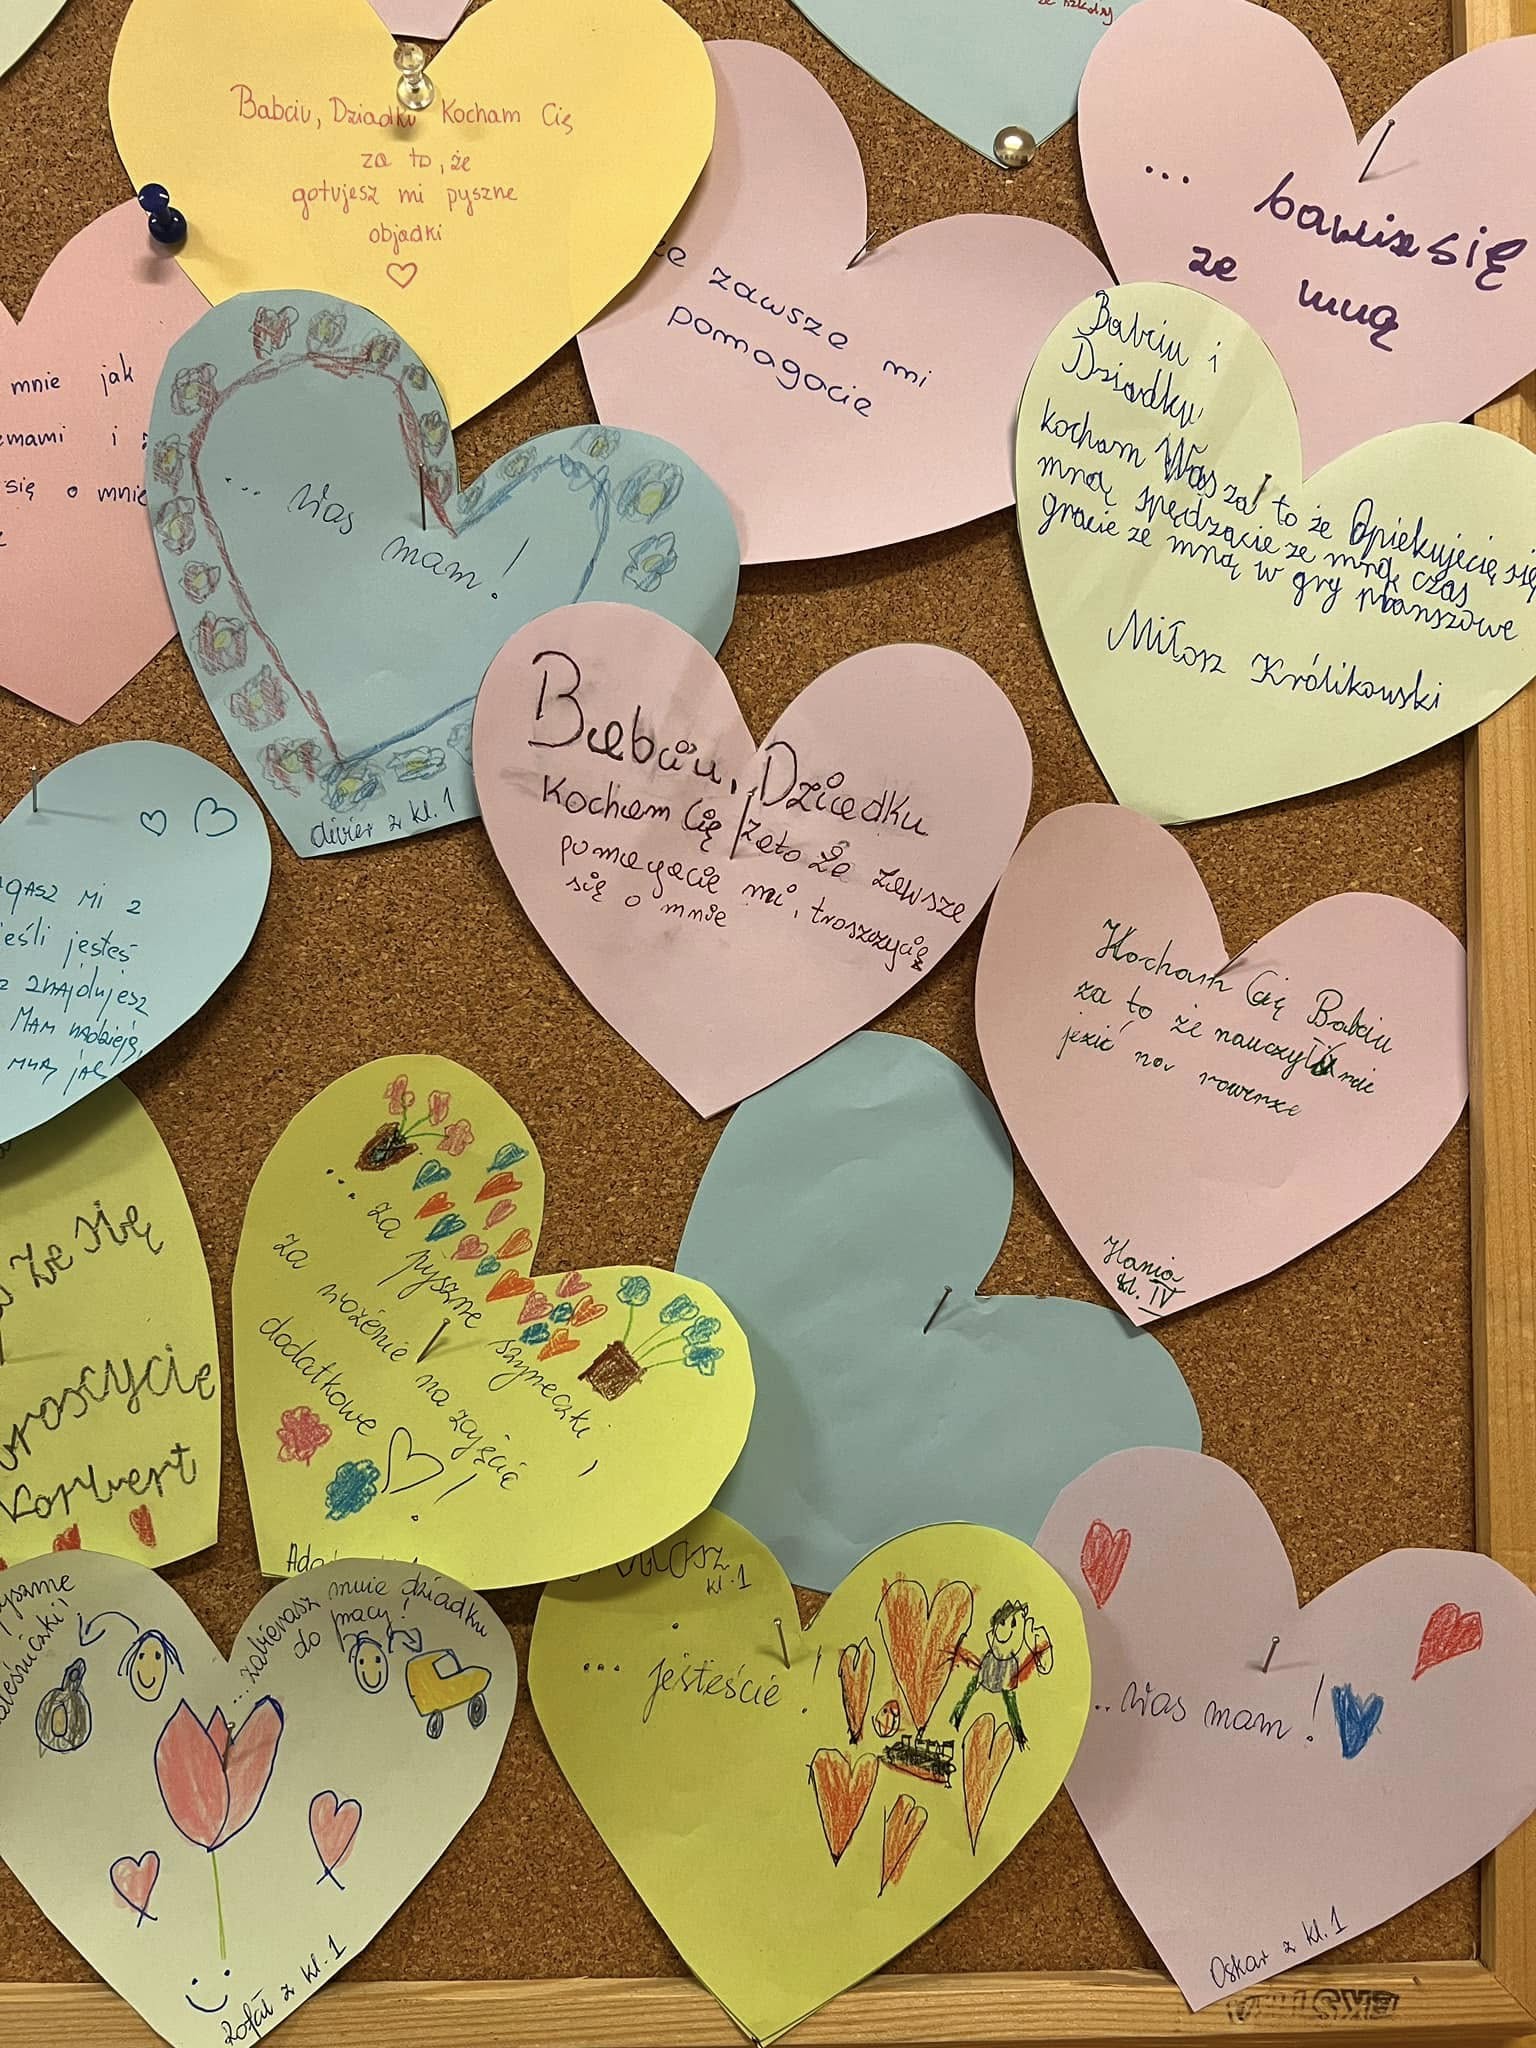 ze szkolny
Babciu, Dziadku Kocham Cię
za to, że
gotujesz mi pyszne
objadki
że zawsze mi
pomagacie
... bawisz się
ze mną
mnie jak
emami i
się o mnie
... Was
mam!
Olivier z kl. 1
Babciu i
Dziadku
kocham Was za to że Opiekujecie się
mną spędzacie ze mną czas
gracie ze mną w gry planszowe
Miłosz Królikowski
Babciu, Dziadku
Kocham Cię zato że zawsze
pomagacie mi, troszczycię
się o mnie
agasz mi z
jeśli jesteś
z znajdujesz
Mam nadzieję,
mną jak
Kocham Cię Babciu
za to że nauczyłaś mie
jezić na rowerze
Hania
kl. IV
że się
troscycie
Korwert
... za pyszne szyneczki,
za wożenie na zajęcia
dodatkowe !
Ada
pyszne
naleśniczki!
... zabierasz mnie dziadku
do pracy!
Rafał z kl. 1
Miłosz
kl. 1
... jesteście!
... Was mam!
Oskar z kl. 1